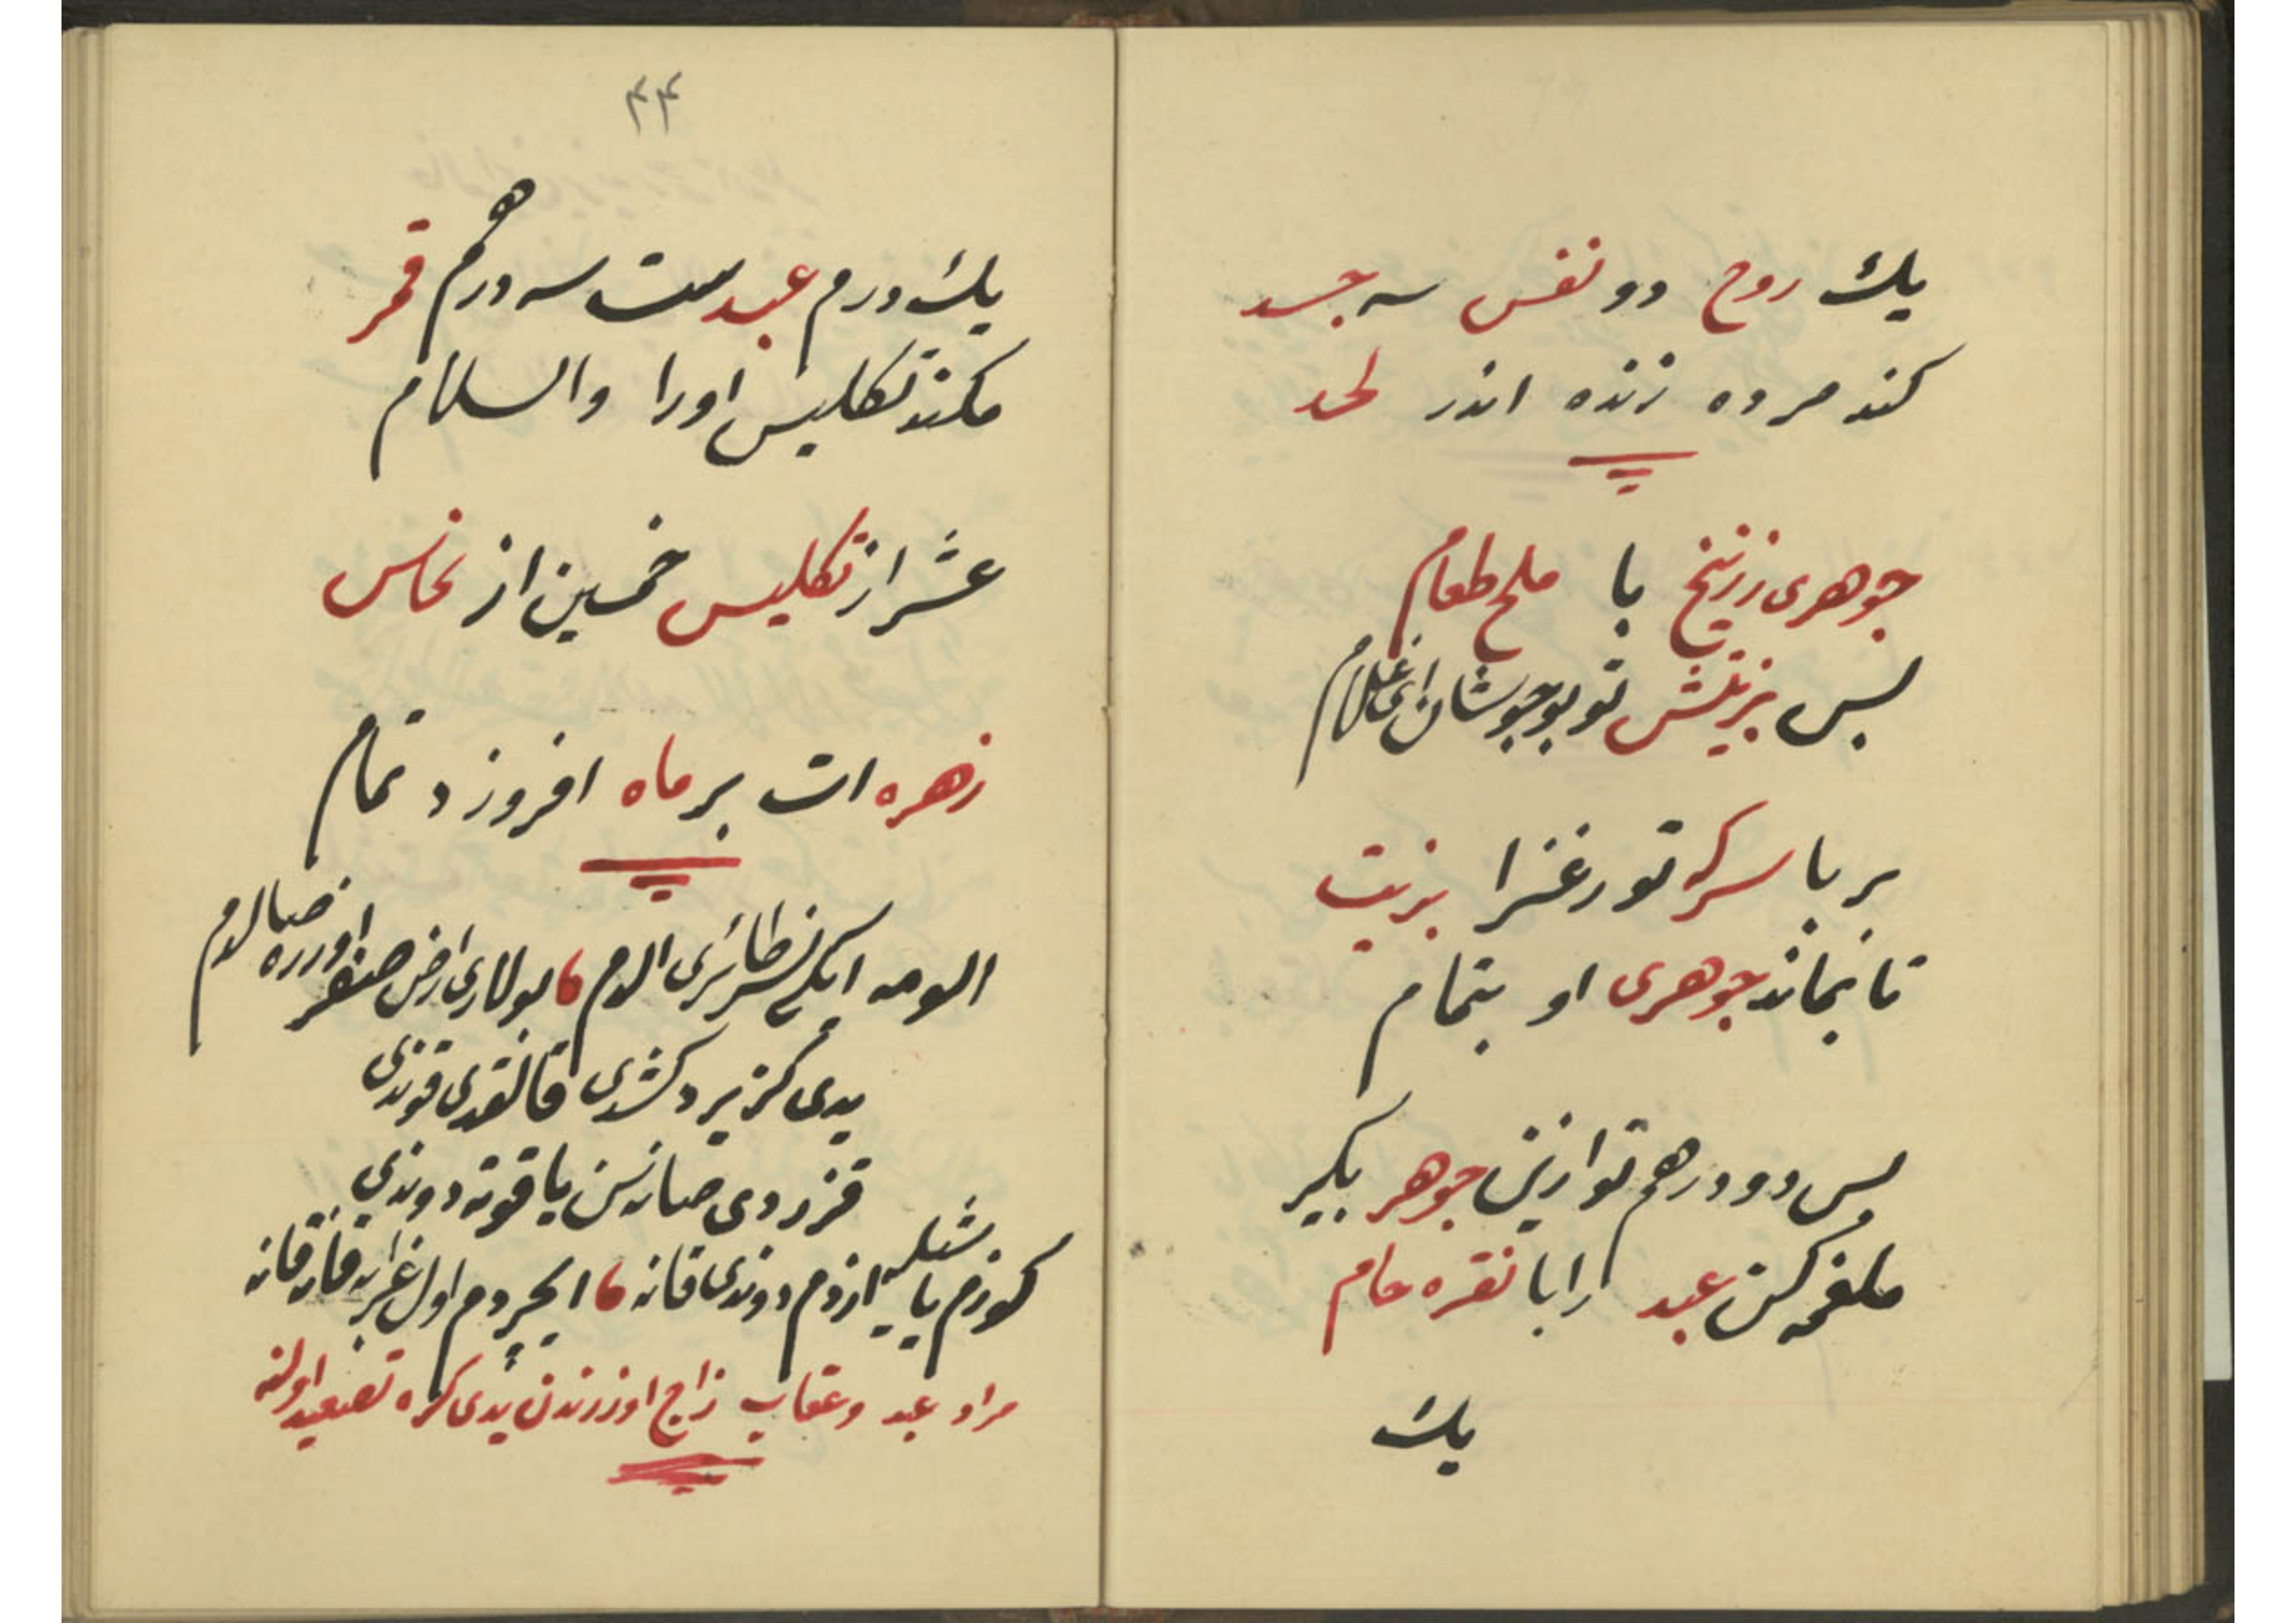 یك روح دو نفس سه جسد
كند مرده زنده اندر لحد
جوهری زرنیخ با ملح طعام
پس بزیتش تو بجوشان ای غلام
بر با سركه تو رغزا بزیت
تا نماند جوهری او بتمام
پس دو درهم تو ازین جوهر بكیر
ملغمه كن عبد را با نقره خام
یك
٤٤
یك درم عبد ست سه درهم قمر
مكند تكلیس اورا والسلام
عشر از تكلیس خمسین از نحاس
زهره ات بر ماه افروزد تمام
الومه ایكی طائری الدم بولاری ارض صفر اوزره صالدم
یدی كز بر دكشدی قالقدی قوندی
قزردی صانسن یاقوته دوندی
كوزم یاشیله ازدم دوندی قانه ایچردم اول غرابه قانه قانه
مراد عبد و عقاب زاج اوزرندن یدی كره تصعید اولنه